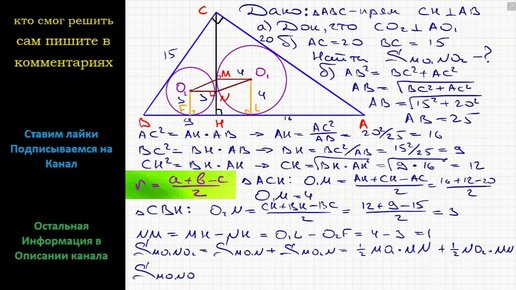 кто смог решить
сам пишите в
комментариях
Ставим лайки
Подписываемся на
Канал
Остальная
Информация в
Описании канала
Дано: ΔABC-прям CH⊥AB
а) Док, что CO₂⊥AO₁
б) AC=20 BC=15
Найти S MO₁NO₂ -?
б) AB²=BC²+AC²
AB=√BC²+AC²
AB=√15²+20²
AB=25
C
15
20
M
4
O₁
O₂
3
3
N
4
F
L
B
9
H
16
A
AC²=AH·AB → AH=AC²/AB=20²/25=16
BC²=BH·AB → BH=BC²/AB=15²/25=9
CH²=BH·AH → CH=√BH·AH=√9·16=12
r=(a+b-c)/2
ΔACH: O₁M=(AH+CH-AC)/2=(16+12-20)/2
O₁M=4
ΔCBH: O₂N=(CH+BH-BC)/2=(12+9-15)/2=3
NM=MH-NH=O₁L-O₂F=4-3=1
S MO₁NO₂=S MO₁N+S MO₂N=½MO₁·MN+½NO₂·MN
S MO₁NO